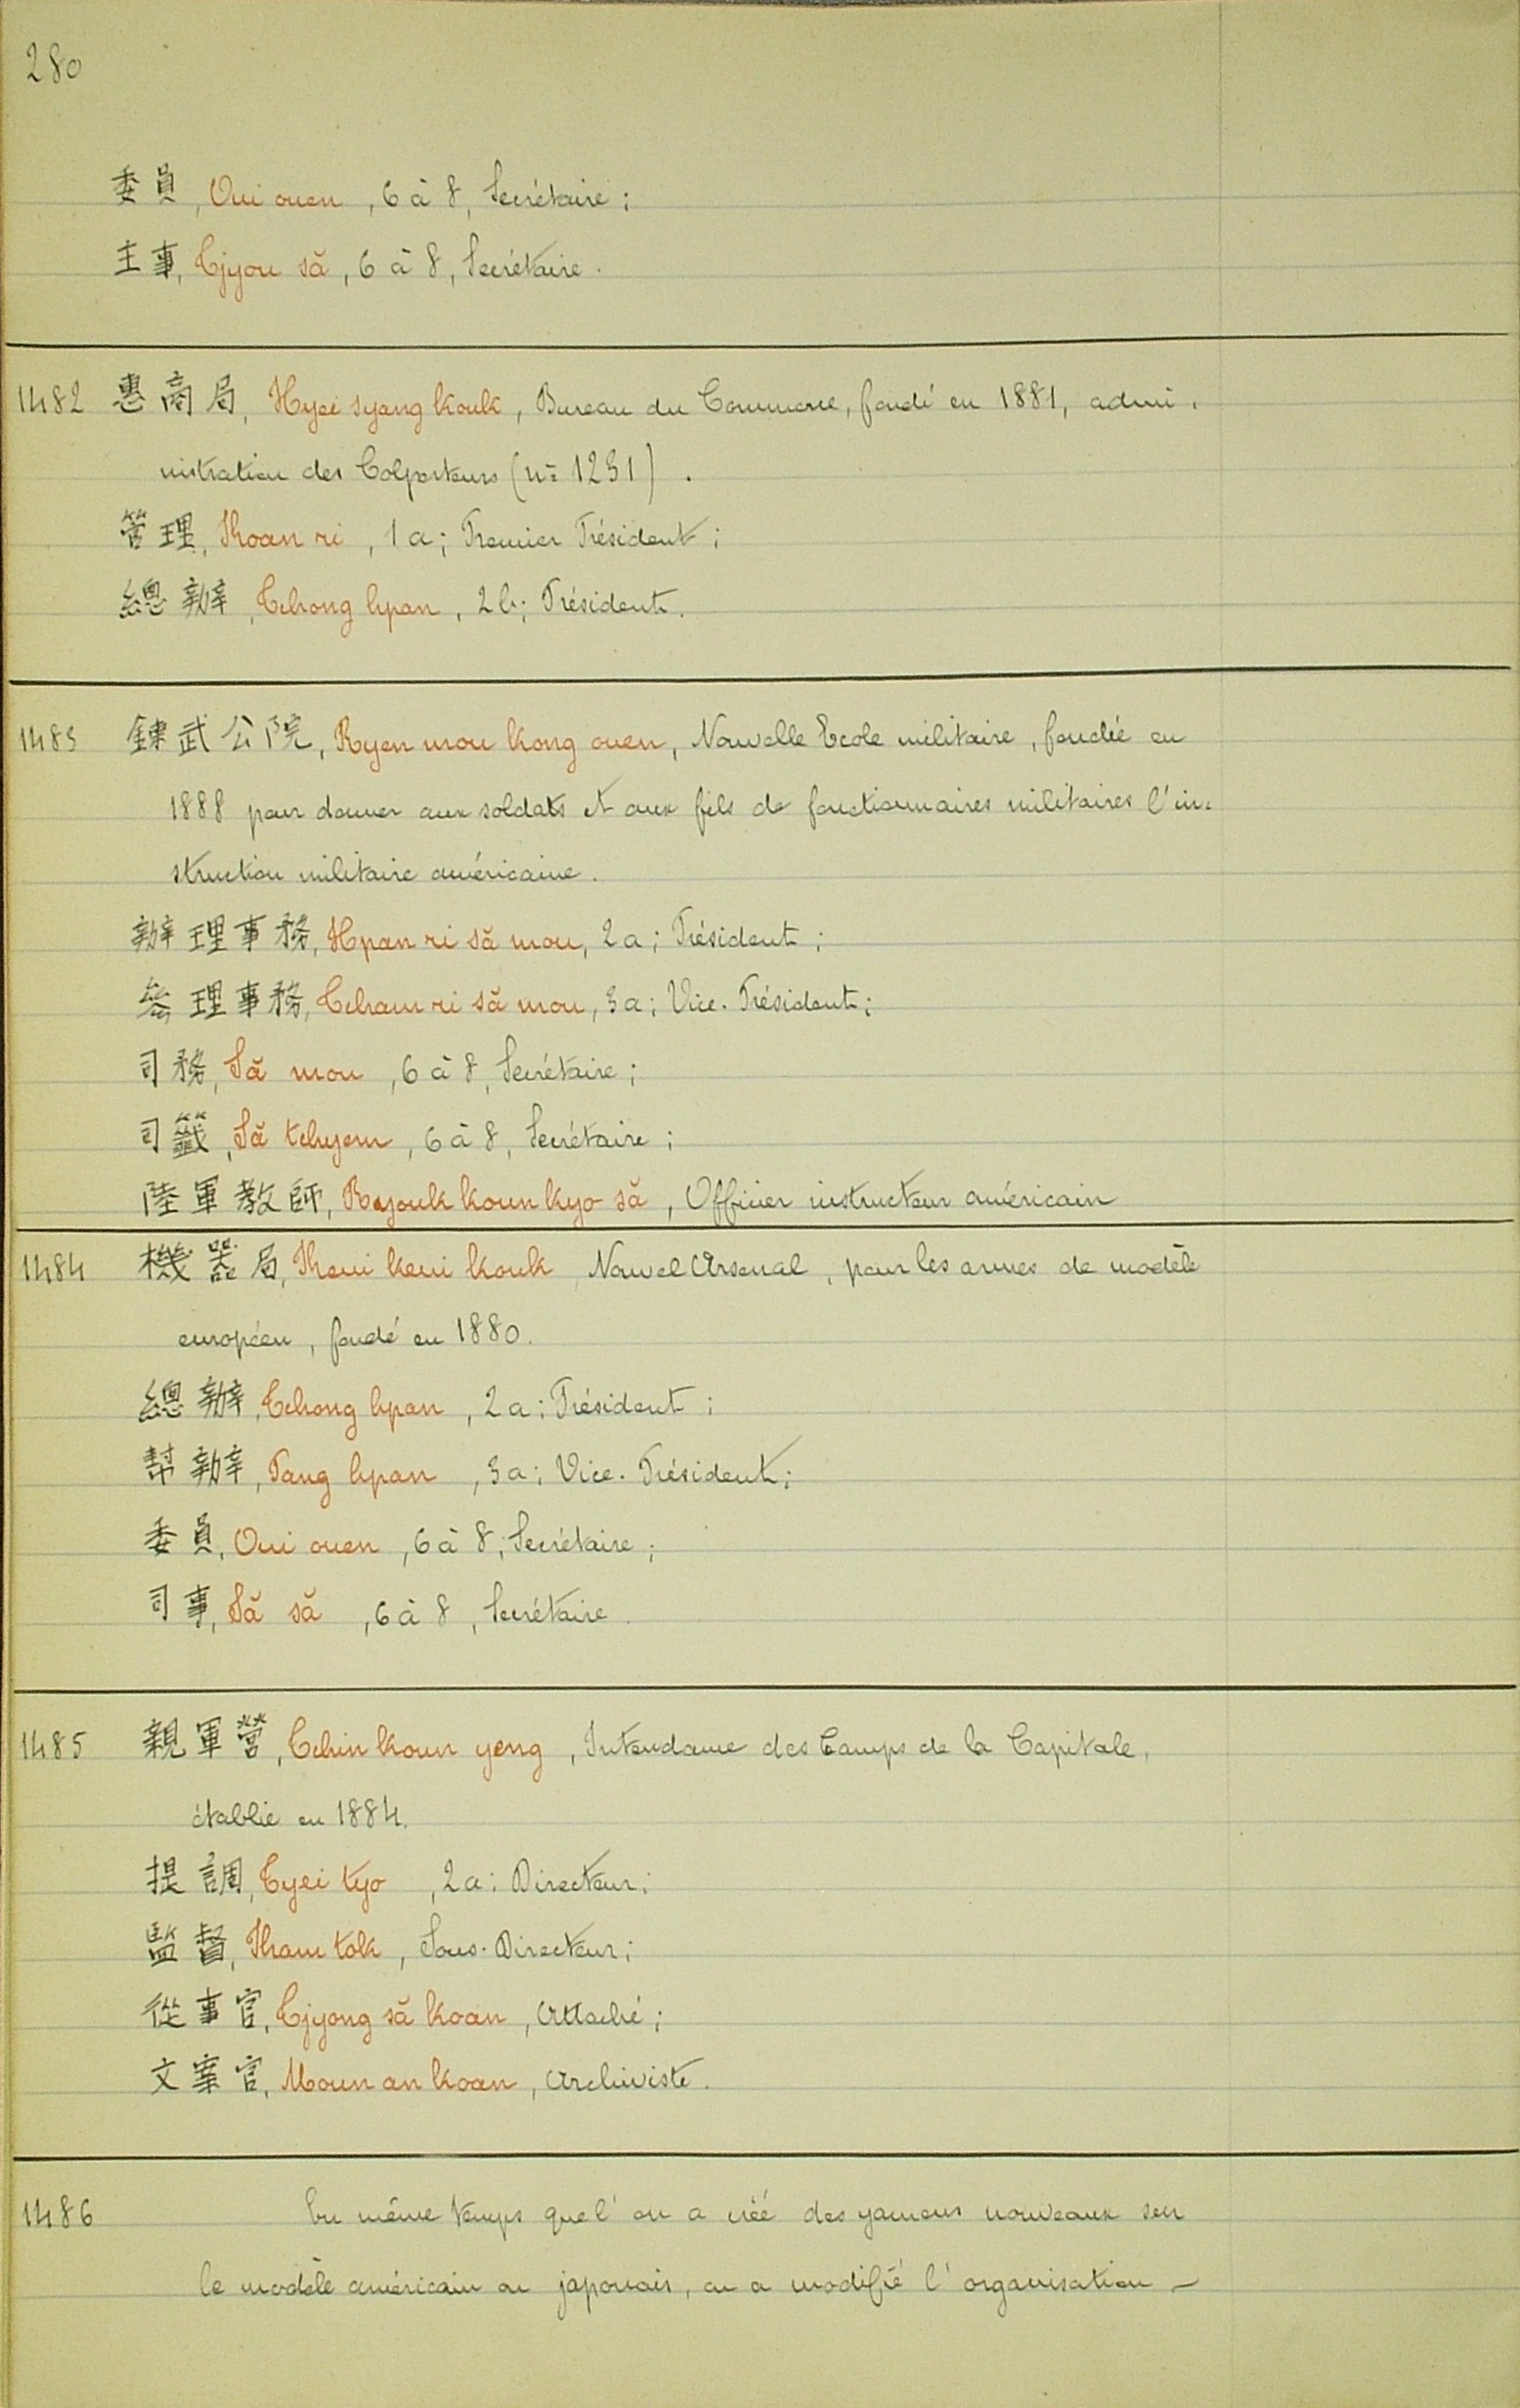 280
委員, Oui ouen, 6 à 8, Secrétaire;
主事, Tjyou să, 6 à 8, Secrétaire.
1482 惠商局, Hyei syang kouk, Bureau du Commerce, fondé en 1881, admi-
nistration des Colporteurs (nº 1231).
管理, Koan ri, 1a; Premier Président;
總辦, Tchong hpan, 2b; Président.
1483 鍊武公院, Ryen mou kong ouen, Nouvelle Ecole militaire, fondée en
1888 pour donner aux soldats et aux fils de fonctionnaires militaires l'in-
struction militaire américaine.
辦理事務, Hpan ri să mou, 2a; Président;
叅理事務, Tcham ri să mou, 3a; Vice-Président;
司務, Să mou, 6 à 8, Secrétaire;
司籤, Să tchyem, 6 à 8, Secrétaire;
陸軍教師, Ryouk koun kyo să, Officier instructeur américain
1484 機器局, Keui keui kouk, Nouvel Arsenal, pour les armes de modèle
européen, fondé en 1880.
總辦, Tchong hpan, 2a; Président;
幇辦, Pang hpan, 3a; Vice-Président;
委員, Oui ouen, 6 à 8, Secrétaire;
司事, Să să, 6 à 8, Secrétaire.
1485 親軍營, Tchin koun yeng, Intendance des Camps de la Capitale,
établie en 1884.
提調, Tyei tyo, 2a; Directeur;
監督, Kam tok, Sous-Directeur;
從事官, Tjyong să koan, Attaché;
文案官, Moun an koan, Archiviste.
1486 En même temps que l'on a créé des yamens nouveaux sur
le modèle américain ou japonais, on a modifié l'organisation -